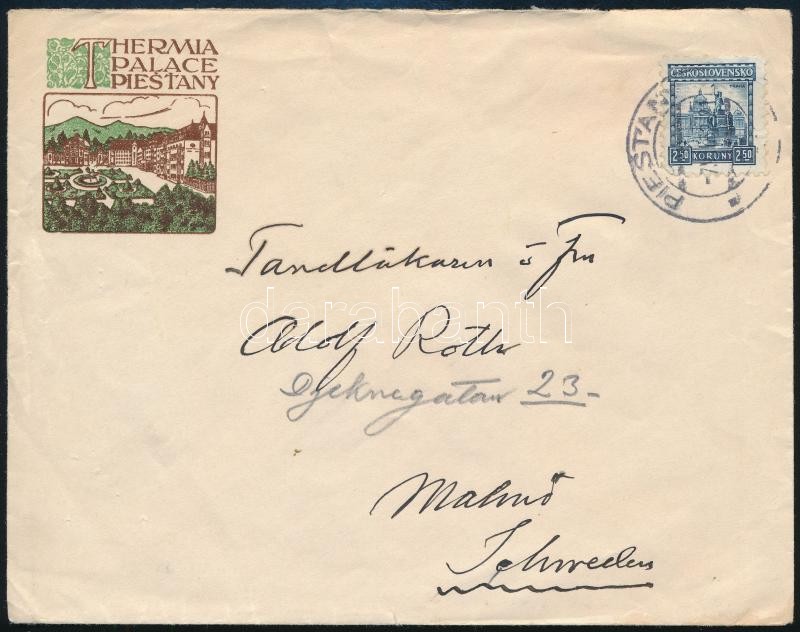 THERMIA
PALACE
PIEŠŤANY
ČESKOSLOVENSKO
PRAHA
2·50 KORUNY 2·50
PIEŠŤANY
Tandläkaren o Fru
Adolf Roth
Djeknegatan 23-
Malmö
Schweden
darabanth